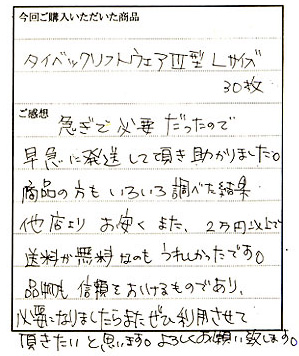 今回ご購入いただいた商品
タイベックソフトウェアⅢ型 Lサイズ
30枚
ご感想
急ぎで必要だったので
早急に発送して頂き助かりました。
商品の方もいろいろ調べた結果
他店よりお安くまた、2万円以上で
送料が無料なのもうれしかったです。
品物も信頼をおけるものであり、
必要になりましたらまたぜひ利用させて
頂きたいと思います。よろしくお願い致します。